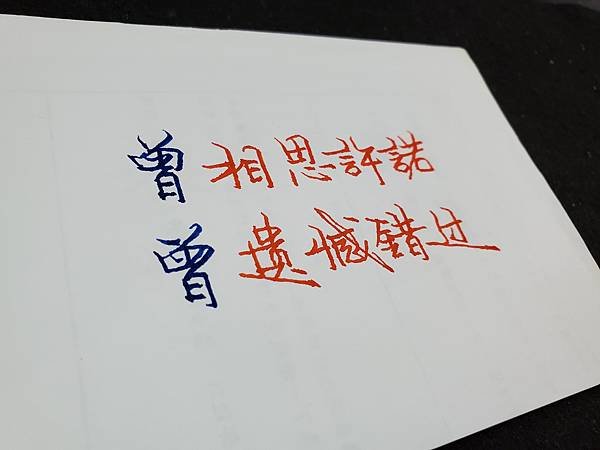 曾相思許諾
曾遗憾錯过